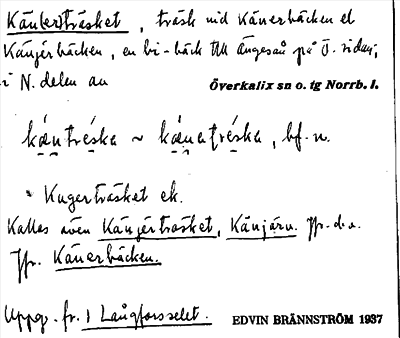 Kän(er)träsket, träsk vid Känerbäcken el
Känjerbäcken, en bi-bäck till Ängesån på Ö. sidan,
i N. delen av Överkalix sn o. tg Norrb. l.
käntréska ~ känatréska, bf. n.
Kugerträsket ek.
Kallas även Känjerträsket, Känjärv. Jfr. d. o.
Jfr. Känerbäcken.
Uppg. fr. 1 Långforsselet. EDVIN BRÄNNSTRÖM 1937